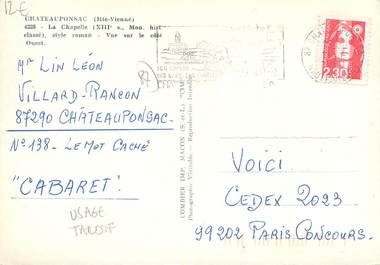 12€
CHATEAUPONSAC (Hte-Vienne)
4229 - La Chapelle (XIIIe s., Mon. hist.
classé), style roman - Vue sur le côté
Ouest.
Mr LIN LÉON
VILLARD-RANCON
87290 CHÂTEAUPONSAC-
No 138 - LE MOT CACHÉ
"CABARET".
USAGE
TARDIF
87
COMBIER IMP. MACON (S.-et-L.)
2,30
VOICI
CEDEX 2023
99202 PARIS CONCOURS.